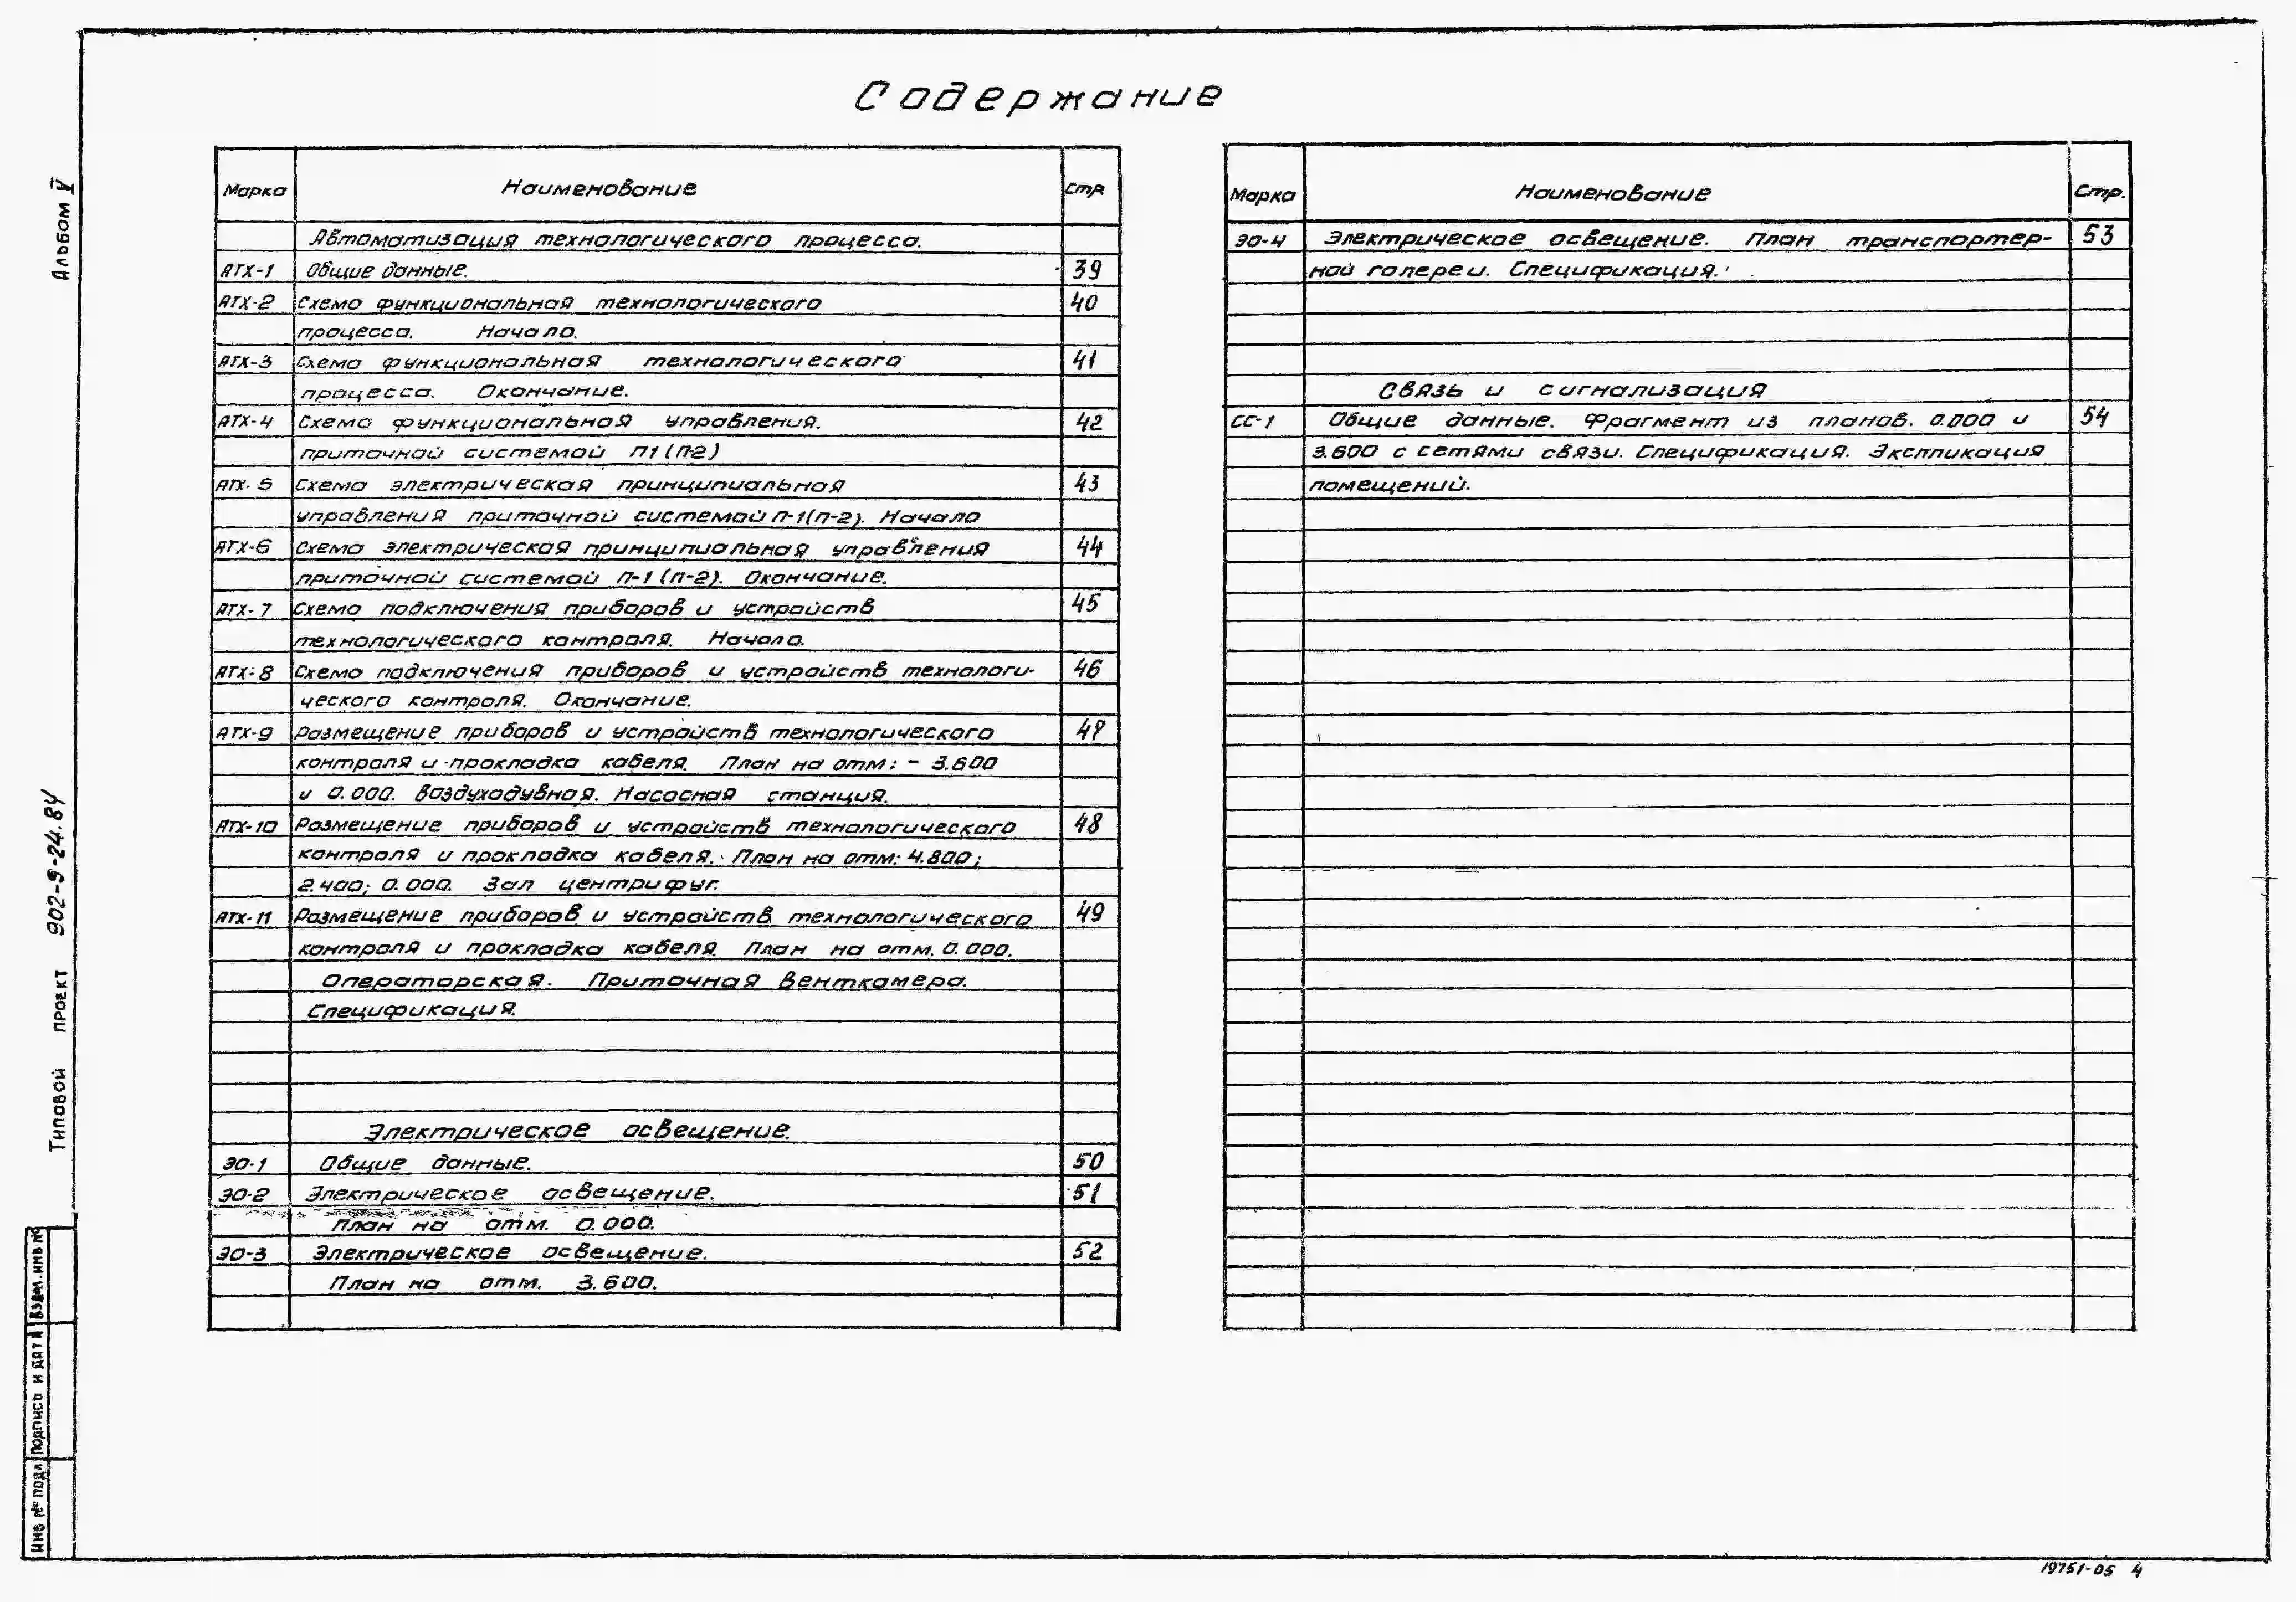 Содержание
Альбом V
Типовой проект 902-9-24.84
Марка Наименование Стр
Автоматизация технологического процесса.
АТХ-1 Общие данные. 39
АТХ-2 Схема функциональная технологического 40
процесса. Начало.
АТХ-3 Схема функциональная технологического 41
процесса. Окончание.
АТХ-4 Схема функциональная управления. 42
приточной системой П1 (П-2)
АТХ-5 Схема электрическая принципиальная 43
управления приточной системой П-1(П-2). Начало
АТХ-6 Схема электрическая принципиальная управления 44
приточной системой П-1 (П-2). Окончание.
АТХ-7 Схема подключения приборов и устройств 45
технологического контроля. Начало.
АТХ-8 Схема подключения приборов и устройств технологи- 46
ческого контроля. Окончание.
АТХ-9 Размещение приборов и устройств технологического 47
контроля и прокладка кабеля. План на отм: - 3.600
и 0.000. Воздуходувная. Насосная станция.
АТХ-10 Размещение приборов и устройств технологического 48
контроля и прокладка кабеля. План на отм: 4.800;
2.400; 0.000. Зал центрифуг.
АТХ-11 Размещение приборов и устройств технологического 49
контроля и прокладка кабеля. План на отм. 0.000.
Операторская. Приточная венткамера.
Спецификация.
Электрическое освещение.
ЭО-1 Общие данные. 50
ЭО-2 Электрическое освещение. 51
План на отм. 0.000.
ЭО-3 Электрическое освещение. 52
План на отм. 3.600.
Марка Наименование Стр.
ЭО-4 Электрическое освещение. План транспортер- 53
ной галереи. Спецификация.
Связь и сигнализация
СС-1 Общие данные. Фрагмент из планов. 0.000 и 54
3.600 с сетями связи. Спецификация. Экспликация
помещений.
Инв № подл Подпись и дата Взам. инв №
19751-05 4